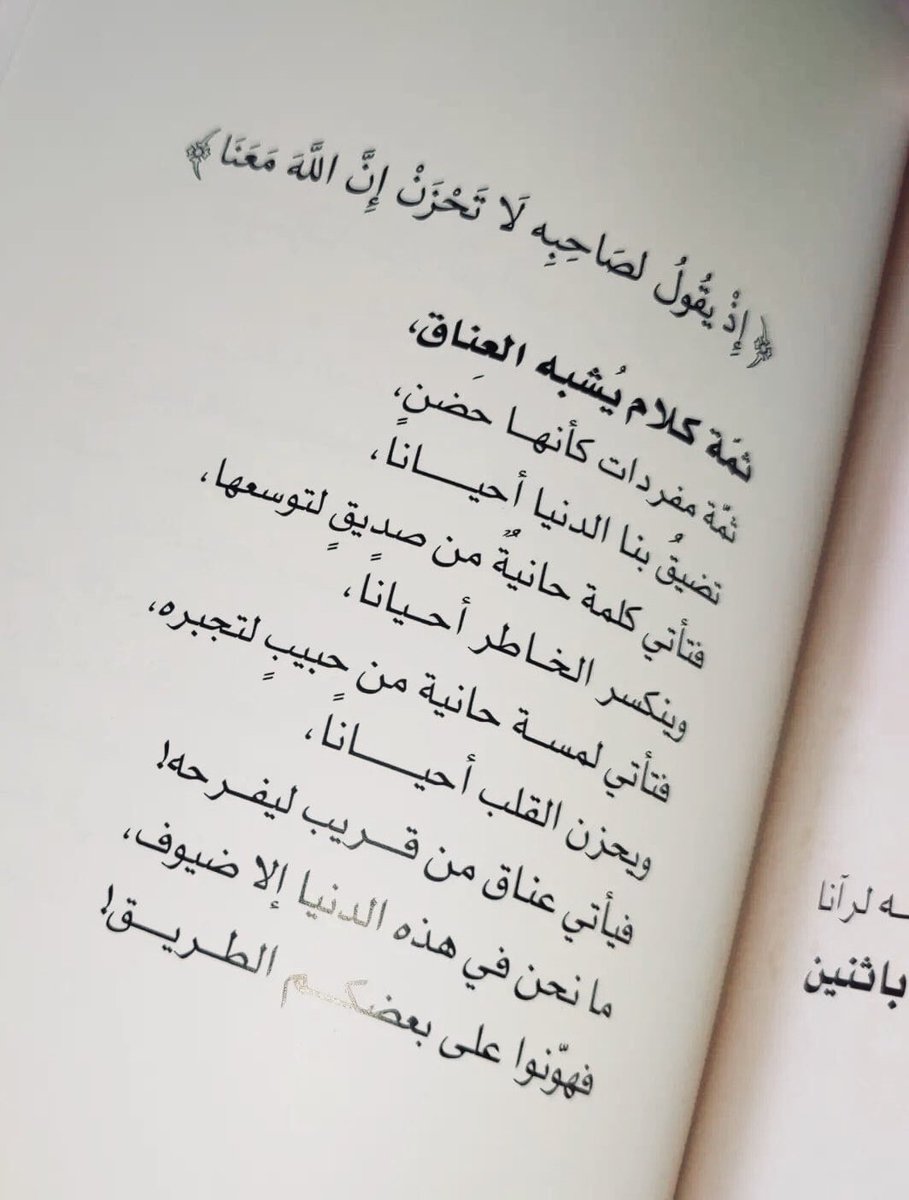 ﴿إِذْ يَقُولُ لصَاحِبِه لَا تَحْزَنْ إِنَّ اللَّهَ مَعَنَا﴾
ثمّة كلام يُشبه العِناق،
ثمّة مفردات كأنها حضنٍ،
تضيقُ بنا الدنيا أحيانا،
فتأتي كلمة حانيةٌ من صديقٍ لتوسعها،
وينكسر الخاطر أحيانًا،
فتأتي لمسة حانية من حبيبٍ لتجبره،
ويحزن القلب أحيانًا،
فيأتي عناق من قريب ليفرحه!
ما نحن في هذه الدنيا إلا ضيوف،
فهوّنوا على بعضكم الطريق!
ـه لرآنا
باثنين